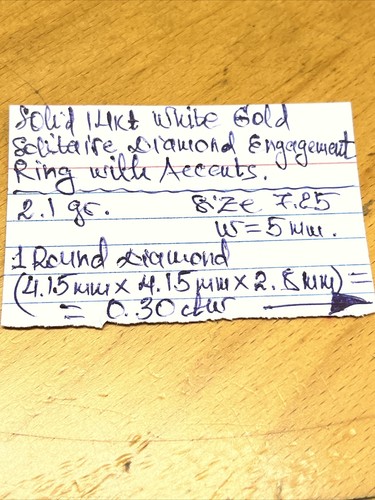 Solid 14kt White Gold
Solitaire Diamond Engagement
Ring with Accents.
2.1 gr. Size 7.25
w=5mm.
1 Round Diamond
(4.15mm x 4.15mm x 2.8mm)=
= 0.30 ctw